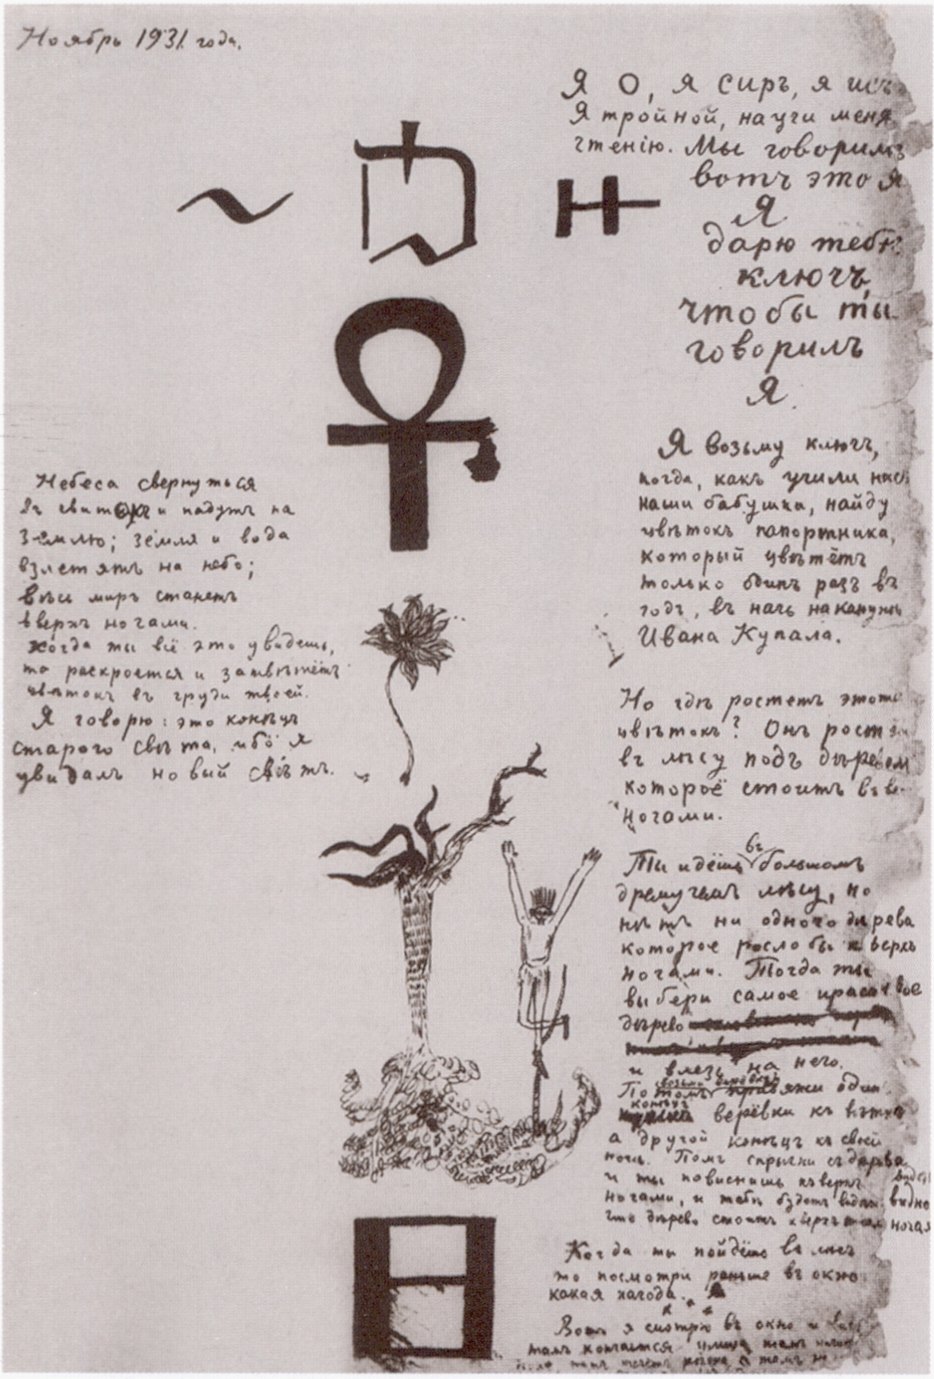 Ноябрь 1931 года.
Я О, я Сиръ, я исъ
Я тройной, научи меня
чтенію. Мы говоримъ
вотъ это я
Я
дарю тебѣ
ключъ,
чтобы ты
говорилъ
Я.
Я возьму ключъ,
когда, какъ учили насъ
наши бабушки, найду
цвѣтокъ папортника,
который цвѣтётъ
только одинъ разъ въ
годъ, въ ночь накануне
Ивана Купала.
Но гдѣ ростетъ этотъ
цвѣтокъ? Онъ ростетъ
въ лѣсу подъ деревом
которое стоитъ
ногами.
Ты идёшь въ большомъ
дремучемъ лѣсу, но
нѣтъ ни одного дерева
которое росло бы к верхъ
ногами. Тогда ты
выбери самое красивое
дерево
и влезь на него.
Потомъ возьми веревку, привяжи один
конецъ верёвки къ вѣткѣ
а другой конецъ къ своей
ноге. Потом спрыгни съ дерева
и ты повиснишь къ верхъ
ногами, и тебѣ будетъ видно
что дерево стоитъ къ верхъ ногам
Когда ты пойдёшь въ лѣсъ
то посмотри раньше въ окно
какая погода.
Вотъ я смотрю въ окно и
тамъ кончается улица тамъ
тамъ течетъ а тамъ
Небеса свернуться
въ свиток и падутъ на
Землю; земля и вода
взлетятъ на небо;
весь миръ станетъ
вверхъ ногами.
когда ты всё это увидешь,
то раскроется и зацвѣтётъ
цвѣтокъ въ груди твоей.
Я говорю: это конецъ
старого свѣта, ибо я
увидалъ новый свѣтъ.